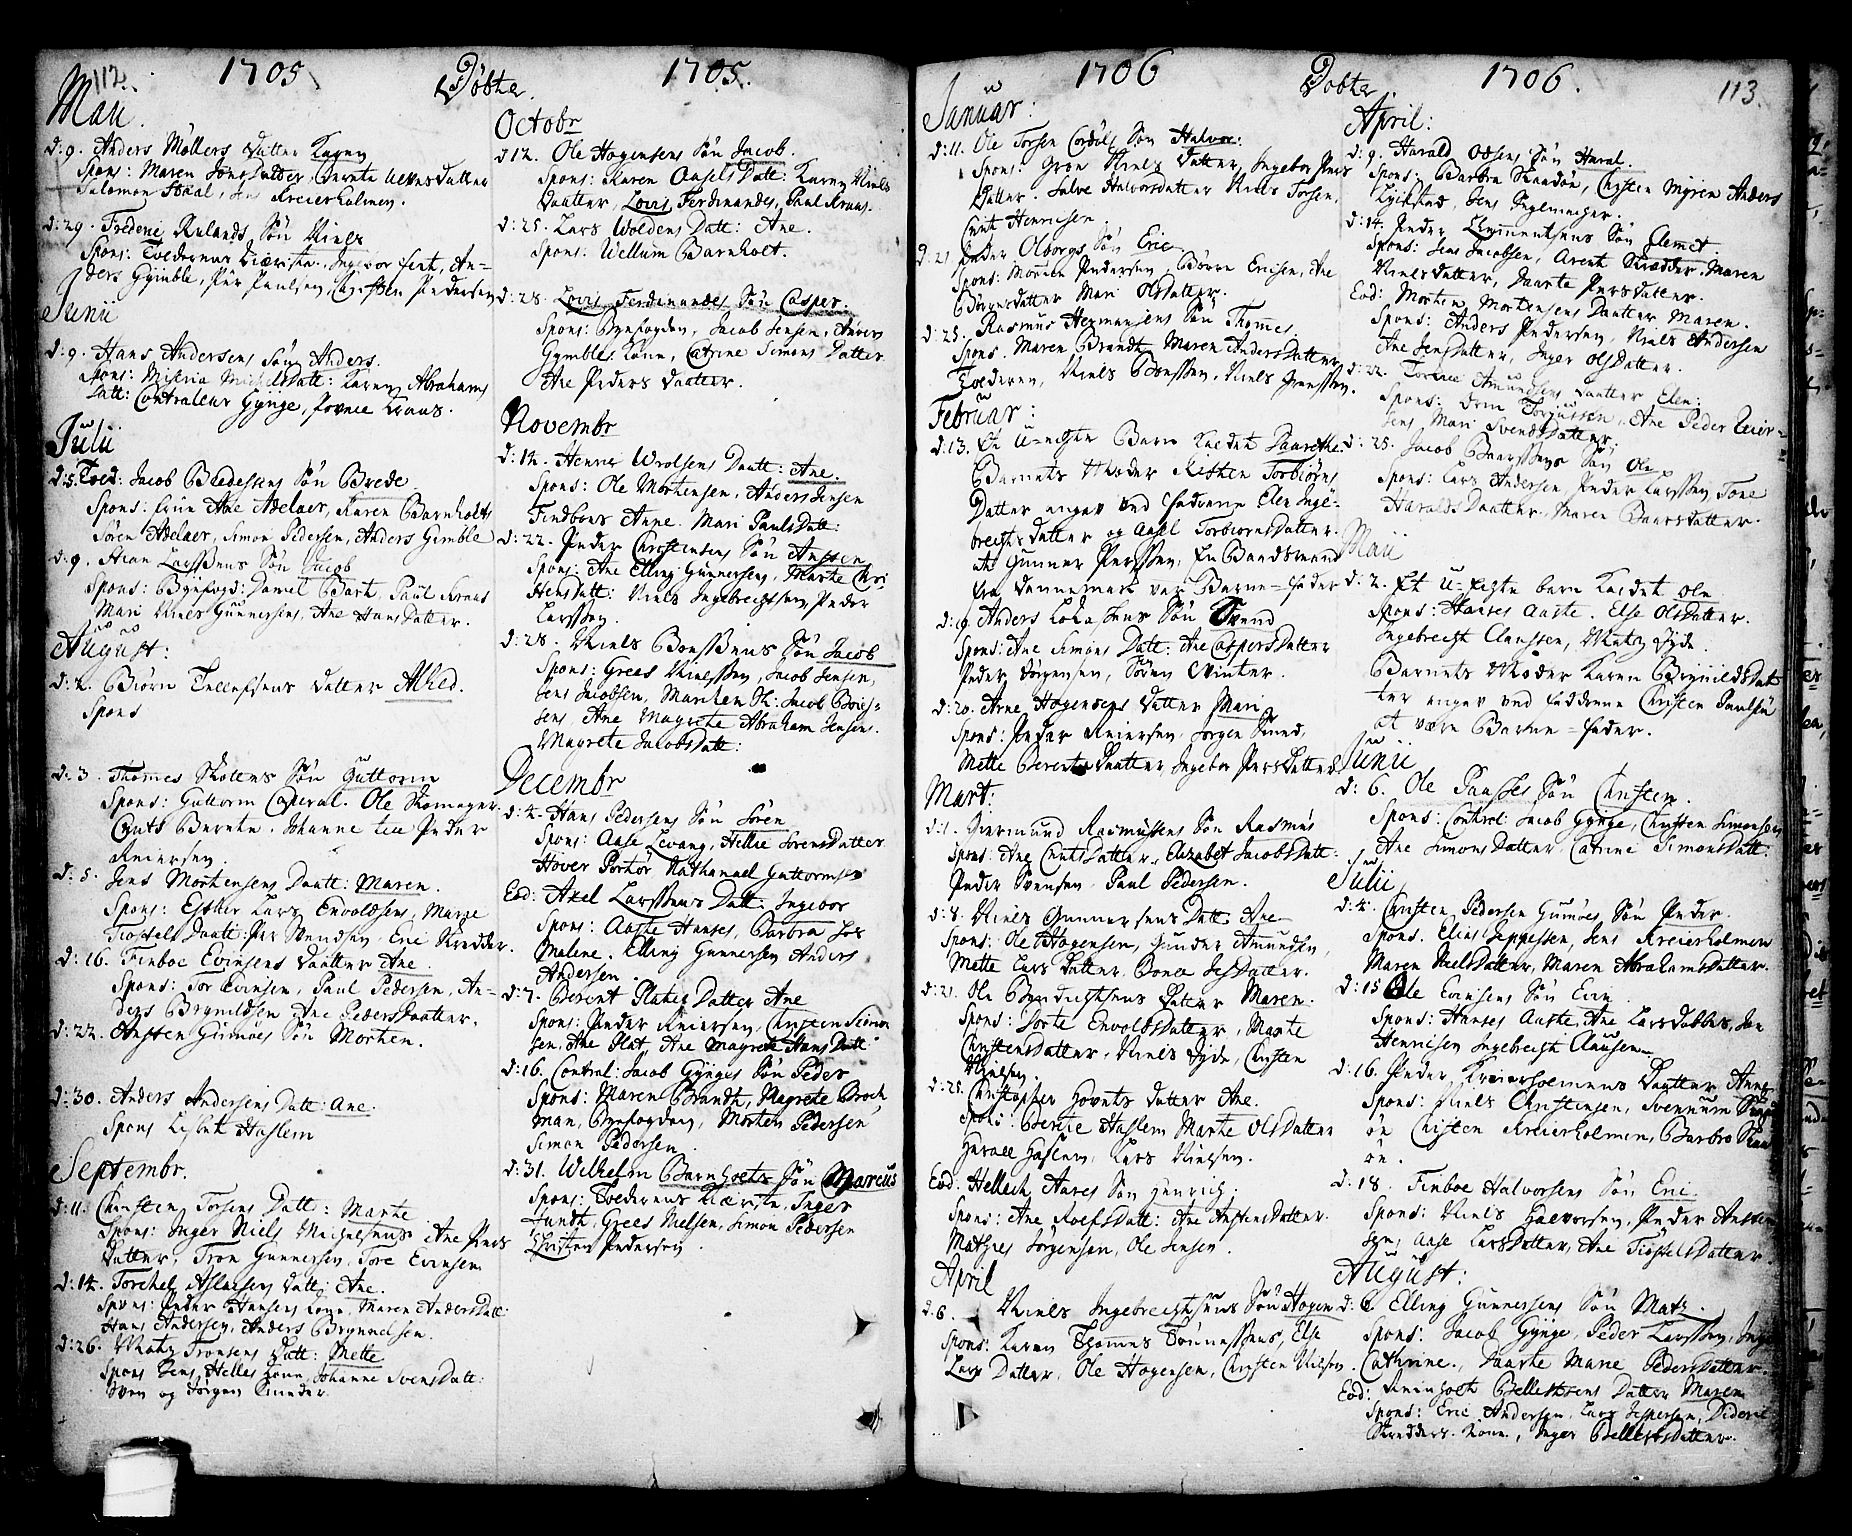 112.
1705
Döbte.
1705.
Maii.
d: 9. Anders Møllers Datter Karen
Spons: Maren Jens Datter, Berente
Salomon Staal, Jens Kreierholmen.
d: 29. Frederic Rulands Sön Niels
Spons: Tolderens Kiæreste, Ingebor Fent, An-
ders Gÿmble, Pär Paulsen, Christen Pedersen
Junii
d: 9. Hans Andersens Sön Anders.
Spons: Michels Datt: Karen Abrahams
Datt: Contraleur Gÿnge, Povel Kraus.
Julii
d: 5. Jacob Bredessens Sön Brede
Spons: Ane Adelaer, Karen Barnholts
Sören Adelaer, Simon Pedersen, Anders Gimble
d: 9. Larssens Sön Jacob
Spons: Bÿefogd: Daniel Bart, Paul Kraus
Mari Niels Gunnersens, Ane Hans Datter.
August:
d: 2. Biörn Tellefsens Datter Alhed.
Spons
d: 3. Thomes Skolens Sön Guttorm
Spons: Guttorm Caperal. Ole Skomager.
Cnuts Berente. Johanne Peder
Reiersen.
d: 5. Jens Mortensens Daatt: Maren.
Spons: Esther Lars Envoldsens, Marie
Tiostels Daatt: Per Svendsen, Eric Skredder.
d: 16. Finboe Evinsens Daatter Ane.
Spons: Tor Evinsen, Paul Pedersen, An-
ders Brÿnildsen Ane Peders Daatter.
d: 22. Ansten Gumöes Sön Morten.
d: 30. Anders Andersens Datt: Ane.
Spons Lisbet Haslem
Septembr.
d: 11. Christen Torsens Datt: Marte
Spons: Inger Niels Michelsens Ane Pers
Datter, Tron Gunnersen, Tore Evinsen
d: 14. Torchel Aslaksens Datt: Ane.
Spons: Peder Hansens Kone, Maren Anders Datt:
Hans Andersen, Anders Brÿnnelsen.
d: 26. Matz Tronsens Datt: Mette
Spons Jens Helles Kone, Johanne Svens Datt:
Sven og Jörgen Smeder.
Octobr
d 12. Ole Hagensens Sön Jacob.
Spons: Karen Axels Datt: Karen Niels
Daatter, Lovis Ferdinandes, Paul Kraus.
d: 25. Lars Woldens Datt: Ane.
Spons: Wellum Barnholt.
d: 28. Lovis Ferdinandes Sön Casper.
Spons: Bÿefogden, Jacob Jensen, Anders
Gÿmbles Kone, Catrine Simons Datter
Ane Peders Daatter.
Novembr
d: 12. Henric Wrolsens Daatt: Ane.
Spons: Ole Mortensen, Anders Jensen
Findboes Anne. Mari Pauls Datt:
d: 22. Peder Christensens Sön Ansten
Spons: Ane Elling Gunnersens, Marte Chri
stens Datt: Niels Ingebrechtsen, Peder
Larssen.
d: 28. Niels Bonssens Sön Jacob
Spons: Grees Nielssen, Jacob Jensen,
Jens Jacobsen, Marichen Sl: Jacob Böies-
sens Ane Magrete Abraham Jensens.
Magrete Jacobs Datt:
Decembr
d: 4. Hans Pedersens Sön Sören
Spons: Aase Levang, Hellie Sörens Datter
Hover Portör Nathanael Guttormsen
Eod: Axel Larssens Datt: Ingebor
Spons: Aaste Hanses, Barbra
Malene. Elling Gunnersen Anders
Andersen.
d: 7. Berent Plates Datter Ane
Spons: Peder Reiersen, Christen Simon
sen, Ane Plat, Ane Magrete Hans Datt:
d: 16. Control: Jacob Gÿnges Sön Peder
Spons: Maren Brandt, Magrete Brock
man, Bÿefogden, Morten Pedersen
Simon Pedersen.
d: 31. Wilhelm Barnholts Sön Marcus
Spons: Tolderens Kiæreste, Inger
Hundt, Grees Nielsen, Simon Pedersen
Christen Pedersen.
1706
Döbte.
1706.
113.
Januar:
d: 11. Ole Torsen Cordils Sön Halvor:
Spons: Gron Niels Datter, Ingebor Pers
Datter. Salve Halvorsdatter Niels Torsen,
Cnut Henricsen.
d. 21 Peder Olborgs Sön Eric
Spons: Morten Pedersen, Börre Ericsen, Ane
Börresdatter Mari Olsdatter.
d: 25. Rasmus Hermansens Sön Thomes
Spons. Maren Brandt, Maren Anders Datter
Tolderen, Niels Bonssen, Niels Jenssen.
Februar:
d: 13. Et U-egte Barn kaldet Daarethe.
Barnets Moder Kisten Torbiörns
Datter angav ved Fadderne Elen Inge-
brechts datter og Axel Torbiornsdatter
at Gunner Perssen, En Baadsmand
fra Dannemark var Barne-fader
d: 19. Anders Sön Svend
Spons: Ane Simons Datt: Ane Caspers Datter
Peder Jörgensen, Sören Winter.
d: 20. Arne Hagensens Datter Mari
Spons: Peder Reiersen, Jörgen Smed,
Mette Berents Daatter, Ingebor Pers Datter
Mart:
d: 1. Giermund Rasmussens Sön Rasmus
Spons: Ane Cnuts Datter, Elizabet Jacobs Datt:
Peder Svensen, Paul Pedersen.
d: 8. Niels Gunnersens Datt: Ane
Spons: Ole Hagensen, Gunder Amundsen,
Mette Lars Datter, Bonde Jes Datter.
d: 21. Ole Bendichtsens Datter Maren.
Spons: Dorte Envoldsdatter, Marte
Christens Datter, Niels Fÿde, Christen
Nielsen.
d: 25. Christopher Goverts Datter Ane.
Spons: Bente Haslem Marte Ols Datter
Herace Haslem, Lars Nielsen.
Eod. Hellech Aares Sön Henrich;
Spons: Ane Roelfs Datt: Ane Anstens Datter.
Mathies Jörgensen, Ole Jensen.
April
d. 6. Niels Ingebrechtsens Sön Hagen
Spons: Karen Thomes Tönnessens, Else
Lars Datter, Ole Hagensen, Christen Nielsen.
April:
d: 9. Harald Odsens Sön Haral.
Spons: Barbra Skaadön, Christen Mÿren Anders
Lÿckstad, Jens Seglmager.
d: 14. Peder Clementsens Sön Clemet
Spons: Jens Jacobsen, Arent Skredder, Maren
Nielsdatter, Daarte Persdatter.
Eod: Morten Mortensens Daatter Maren.
Spons: Anders Pedersen, Niels Andersen
Ane Jens Datter, Inger Olsdatter.
d: 22. Amundsens Daatter Elen:
Spons: Torgiussen, Ane Peder Reier-
sens Mari Svends Datter.
d: 25. Jacob Baarssens Sön Ole
Spons: Lars Andersen, Peder Larssen, Tone
Haralds Daatter, Maren Baarsdatter.
Maii
d: 2. Et U-Egte barn kaldet Ole
Spons: Hanses Aaste. Else Olsdatter.
Ingebrecht Claussen, Matz Fÿde.
Barnets Moder Karen Brÿnilds Dat
ter angav ved fadderne Christen Paulsen
at være Barne-fader.
Junii
d: 6. Ole Paasses Sön Christen.
Spons: Control: Jacob Gÿnge, Christen Simonsen
Ane Simons Datter, Catrine Simons Datt:
Julii
d: 4. Christen Pedersen Gumöes Sön Peder.
Spons. Elias Jeppessen, Jens Kreierholmen
Maren Nielsdatter, Maren Abrahamsdatter.
d: 15 Ole Evensens Sön Even.
Spons: Hanses Aaste, Ane Larsdatter, Jen
Henricsen Ingebrecht Clausen
d: 16. Peder Kreierholmens Daatter Anne
Spons: Niels Christensen, Svennum
ön Christen Kreierholmen, Barbro Skaa
ön.
d. 18. Finboe Halvorsens Sön Eric
Spons: Niels Halvorsen, Peder Ansten
sen, Aase Lars Datter, Ane Tiostels Datter
August:
d: 6. Elling Gunnersens Sön Matz.
Spons: Jacob Gÿnge, Peder Larssen,
Cathrine., Daarte Marie Peders Datter.
Eod: Reinholt Pellessens Datter Maren
Spons: Eric Andersen, Lars Jespersen, Dideric
Skredders Kone., Inger Pellesdatter.